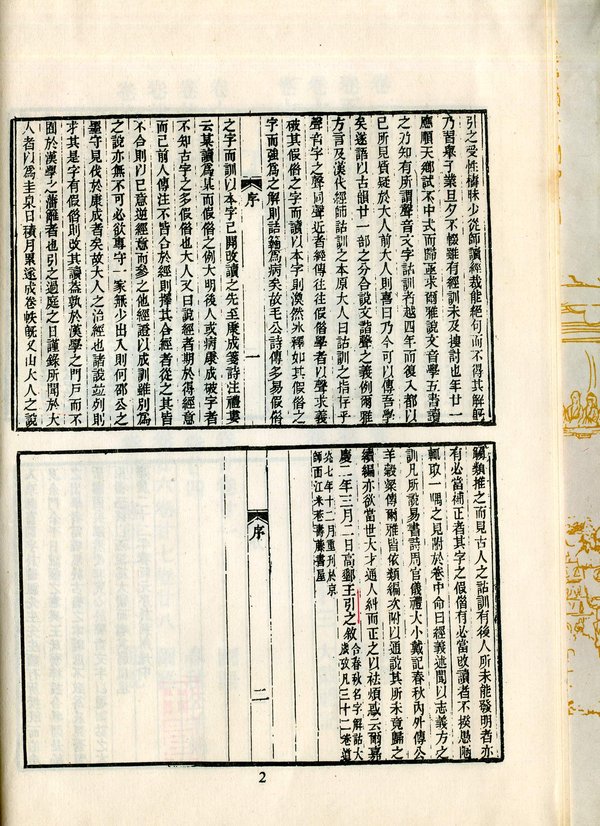 引之受性檮昧少從師讀經裁能絕句而不得其解旣
乃習舉子業旦夕不輟雖有經訓未及搜討也年廿一
應順天鄉試不中式而歸亟求爾雅說文音學五書讀
之乃知有所謂聲音文字詁訓者越四年而復入都以
己所見質疑於大人前大人則喜曰乃今可以傳吾學
矣遂語以古韻廿一部之分合說文諧聲之義例爾雅
方言及漢代經師詁訓之本原大人曰詁訓之指存乎
聲音字之聲同聲近者經傳往往假借學者以聲求義
破其假借之字而讀以本字則渙然冰釋如其假借之
字而強爲之解則詰𥷚爲病矣故毛公詩傳多易假借
序
一
之字而訓以本字已開改讀之先至康成箋詩注禮婁
云某讀爲某而假借之例大明後人或病康成破字者
不知古字之多假借也大人又曰說經者期於得經意
而已前人傳注不皆合於經則擇其合經者從之其皆
不合則以己意逆經意而參之他經證以成訓雖別爲
之說亦無不可必欲專守一家無少出入則何邵公之
墨守見伐於康成者矣故大人之治經也諸說竝列則
求其是字有假借則改其讀蓋孰於漢學之門戶而不
囿於漢學之藩籬者也引之過庭之日謹錄所聞於大
人者以爲圭臬日積月累遂成卷帙旣又由大人之說
觸類推之而見古人之詁訓有後人所未能發明者亦
有必當補正者其字之假借有必當改讀者不揆愚陋
輒取一隅之見附於卷中命曰經義述聞以志義方之
訓凡所說易書詩周官儀禮大小戴記春秋內外傳公
羊穀梁傳爾雅皆依類編次附以通說其所未竟歸之
續編亦欲當世大才通人糾而正之以袪煩惑云爾嘉
慶二年三月二日高郵王引之敘
合春秋名字解詁大
歲攷凡三十二卷道
光七年十二月重刊於京
師西江米巷壽藤書屋
序
二
2